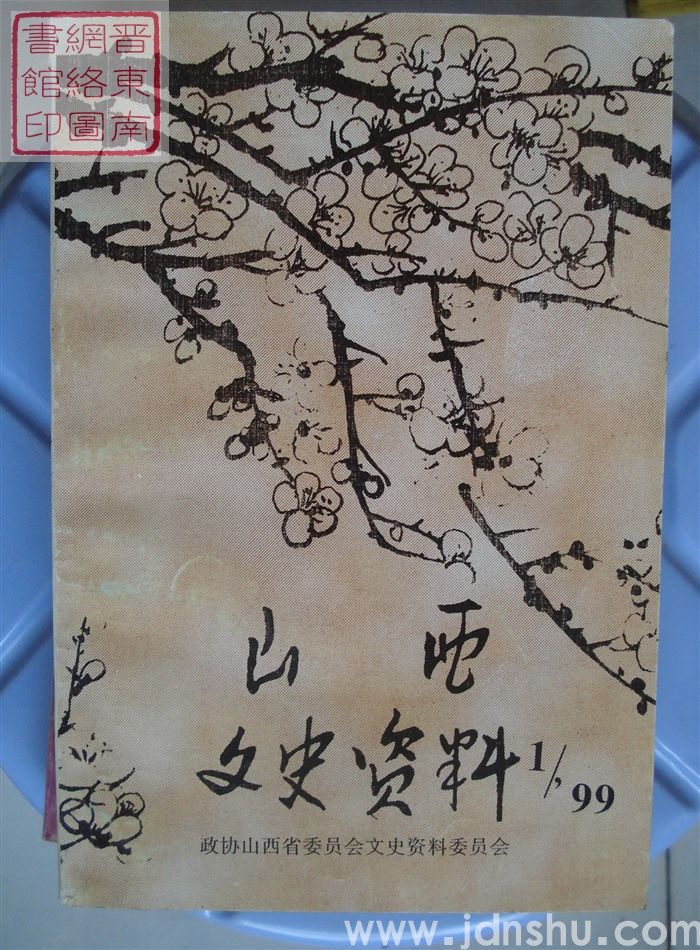 晋東南
網絡圖
書館印
山西
文史资料 1/,99
政协山西省委员会文史资料委员会
www.jdnshu.com